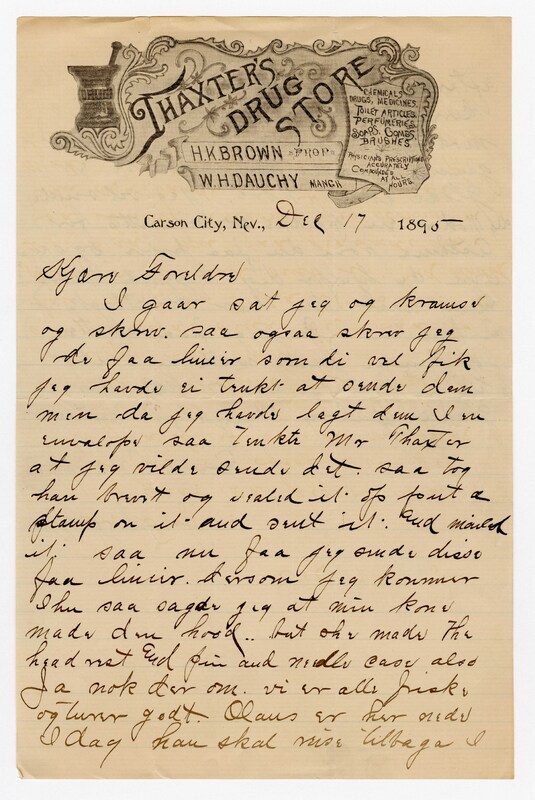 THAXTER'S
DRUG
STORE
DRUGS
CHEMICALS
DRUGS, MEDICINES,
TOILET ARTICLES
PERFUMERIES
SOAPS, COMBS,
BRUSHES
PHYSICIANS PRESCRIPTIONS
ACCURATELY
COMPOUNDED
AT ALL
HOURS.
H.K. BROWN PROP.
W.H. DAUCHY MANGR
Carson City, Nev., Dec 17 1895
Kjære Foreldre
I gaar sat jeg og
og skrev. saa ogsaa skrev jeg
de faa linier som di vel fik
jeg havde ei tenkt at sende dem
men da jeg havde lagt dem I en
envalope saa tenkte Mr Thaxter
at jeg vilde sende det. saa tog
han brevet og sealed it op put a
stamp on it and sent it. End mailed
it saa nu faa jeg sende disse
faa linier. dersom jeg kommer
Ihu saa sagde jeg at min kone
made den hood.. but she made the
head rest End pin and needle case also
Ja nok der om. vi er alle friske
og lever godt. Olaus er her nede
I dag han skal reise tilbaga I